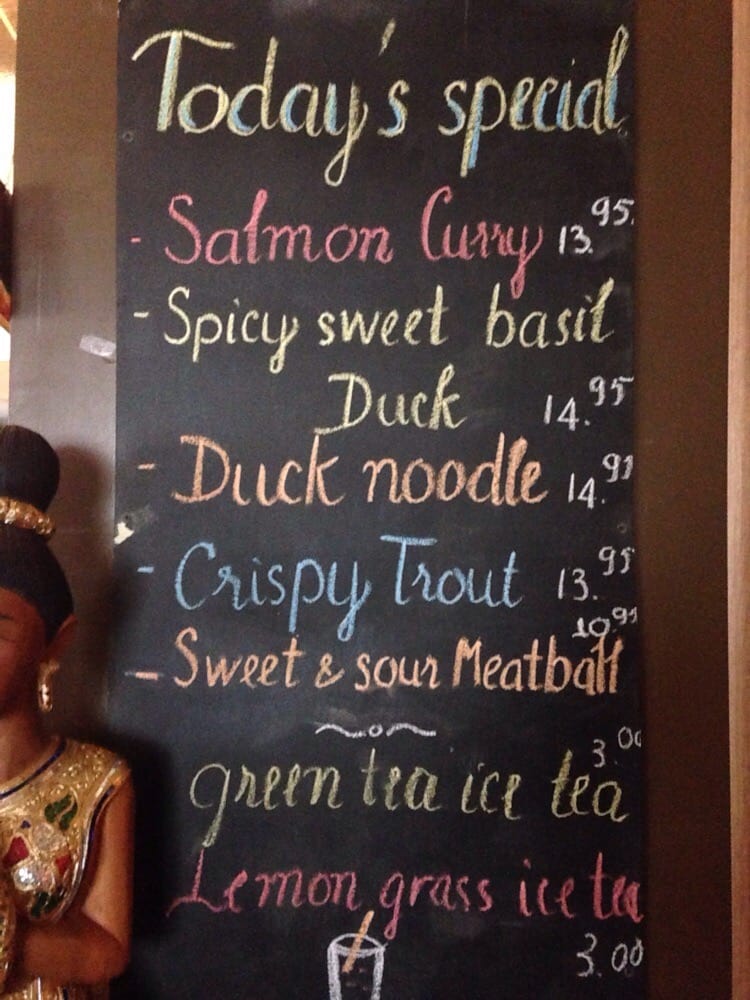 Today's special
- Salmon Curry 13.95
- Spicy sweet basil
Duck 14.95
- Duck noodle 14.95
- Crispy Trout 13.95
10.95
- Sweet & sour Meatball
3.00
green tea ice tea
Lemon grass ice tea
3.00